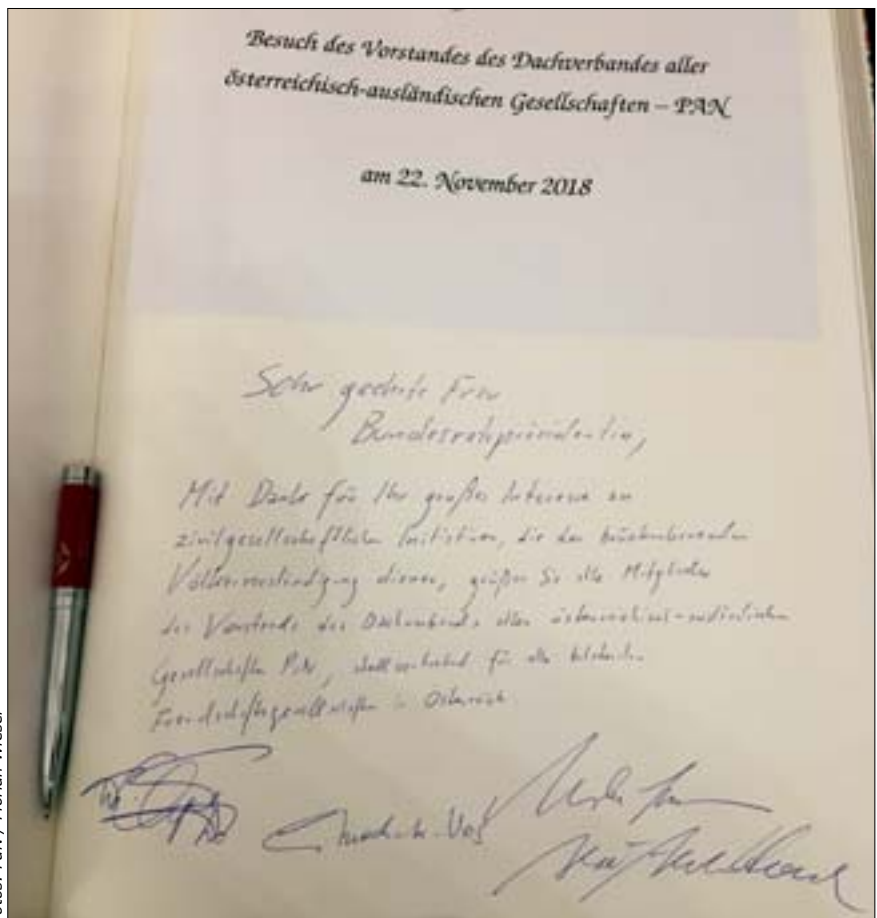 Besuch des Vorstandes des Dachverbandes aller
österreichisch-ausländischen Gesellschaften – PAN
am 22. November 2018
Sehr geehrte Frau
Bundesratspräsidentin,
Mit Dank für Ihr großes Interesse an
zivilgesellschaftlichen Initiativen, die der
Völkerverständigung dienen, grüßen Sie alle Mitglieder
des Vorstands des Dachverbands aller österreichisch-ausländischen
Gesellschaften PAN, stellvertretend für alle
Freundschaftsgesellschaften in Österreich.